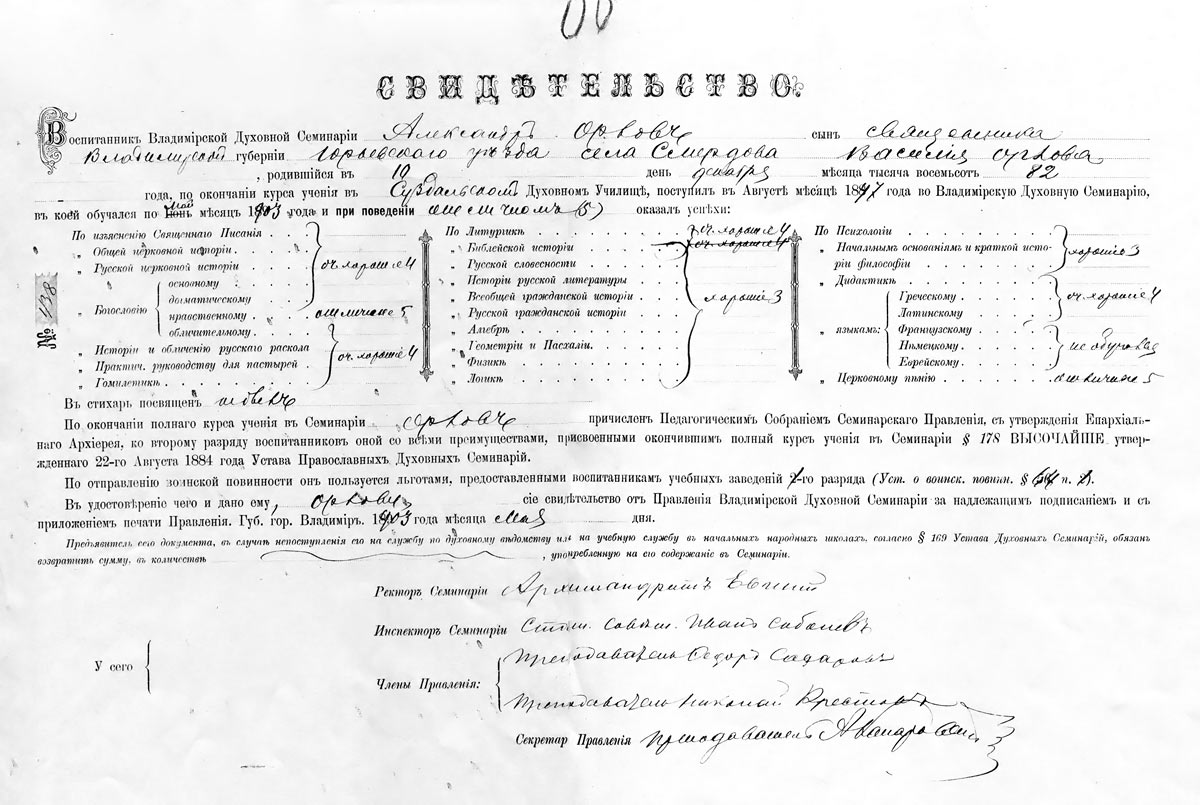 СВИДѢТЕЛЬСТВО.
Воспитанник Владимірской Духовной Семинаріи Александръ Орловъ сынъ священника
Владимирской губерніи Юрьевскаго уѣзда села Смердова Василія Орлова
, родившійся въ 10 день декабря мѣсяца тысяча восемьсотъ 82
года, по окончаніи курса ученія въ Суздальскомъ Духовномъ Училищѣ, поступилъ въ Августѣ мѣсяцѣ 1897 года во Владимірскую Духовную Семинарію,
въ коей обучался по Май мѣсяцъ 1903 года и при поведеніи отличномъ (5) оказалъ успѣхи:
По изъясненію Священнаго Писанія
„ Общей церковной исторіи
„ Русской церковной исторіи
„ Богословію
основному
догматическому
оч. хорошіе 4
нравственному
обличительному
отличные 5
„ Исторіи и обличенію русскаго раскола
„ Практич. руководству для пастырей
„ Гомилетикѣ
оч. хорошіе 4
№ 438
По Литургикѣ оч. хорошіе 4
„ Библейской исторіи оч. хорошіе 4
„ Русской словесности
„ Исторіи русской литературы
„ Всеобщей гражданской исторіи хорошіе 3
„ Русской гражданской исторіи
„ Алгебрѣ
„ Геометріи и Пасхаліи
„ Физикѣ
„ Логикѣ
По Психологіи
„ Начальнымъ основаніямъ и краткой исто-
ріи философіи хорошіе 3
„ Дидактикѣ
„ языкамъ:
Греческому
Латинскому
оч. хорошіе 4
Французскому
Нѣмецкому
Еврейскому
не обучался
„ Церковному пѣнію отличные 5
Въ стихарь посвященъ
По окончаніи полнаго курса ученія въ Семинаріи Орловъ причисленъ Педагогическимъ Собраніемъ Семинарскаго Правленія, съ утвержденія Епархіаль-
наго Архіерея, ко второму разряду воспитанниковъ оной со всѣми преимуществами, присвоенными окончившимъ полный курсъ ученія въ Семинаріи § 178 ВЫСОЧАЙШЕ утвер-
жденнаго 22-го Августа 1884 года Устава Православныхъ Духовныхъ Семинарій.
По отправленію воинской повинности онъ пользуется льготами, предоставленными воспитанникамъ учебныхъ заведеній 1-го разряда (Уст. о воинск. повинн. § 64 п. 1).
Въ удостовѣреніе чего и дано ему, Орлову, сіе свидѣтельство отъ Правленія Владимірской Духовной Семинаріи за надлежащимъ подписаніемъ и съ
приложеніемъ печати Правленія. Губ. гор. Владиміръ. 1903 года мѣсяца Мая дня.
Предъявитель сего документа, въ случаѣ непоступленія его на службу по духовному вѣдомству или на учебную службу въ начальныхъ народныхъ школахъ, согласно § 169 Устава Духовныхъ Семинарій, обязанъ
возвратить сумму, въ количествѣ , употребленную на его содержаніе въ Семинаріи.
Ректоръ Семинаріи Архимандритъ Евгеній
Инспекторъ Семинаріи Стат. Совѣт. Иванъ Соболевъ
У сего
Члены Правленія:
Преподаватель Ѳедоръ
Преподаватель Николай
Секретарь Правленія преподаватель